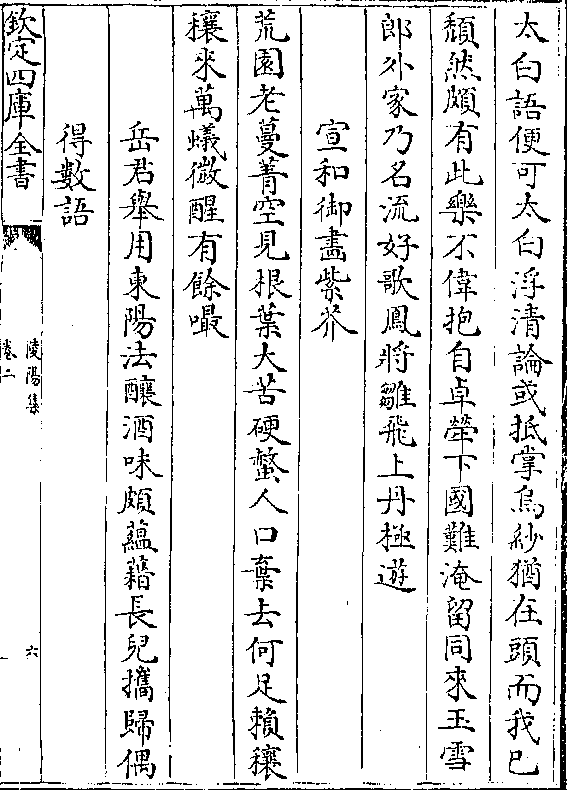 太白語便可太白浮清論或抵掌烏紗猶在頭而我已
頹然頗有此樂不偉抱自卓犖下國難淹留同來玉雪
郎外家乃名流好歌鳳將雛飛上丹極遊
宣和御畫紫芥
荒園老蔓菁空見根葉大苦硬螫人口棄去何足賴穰
穰來萬蟻微醒有餘嘬
岳君舉用東陽法釀酒味頗蘊藉長兒攜歸偶
得數語
欽定四庫全書
陵陽集
卷二
六